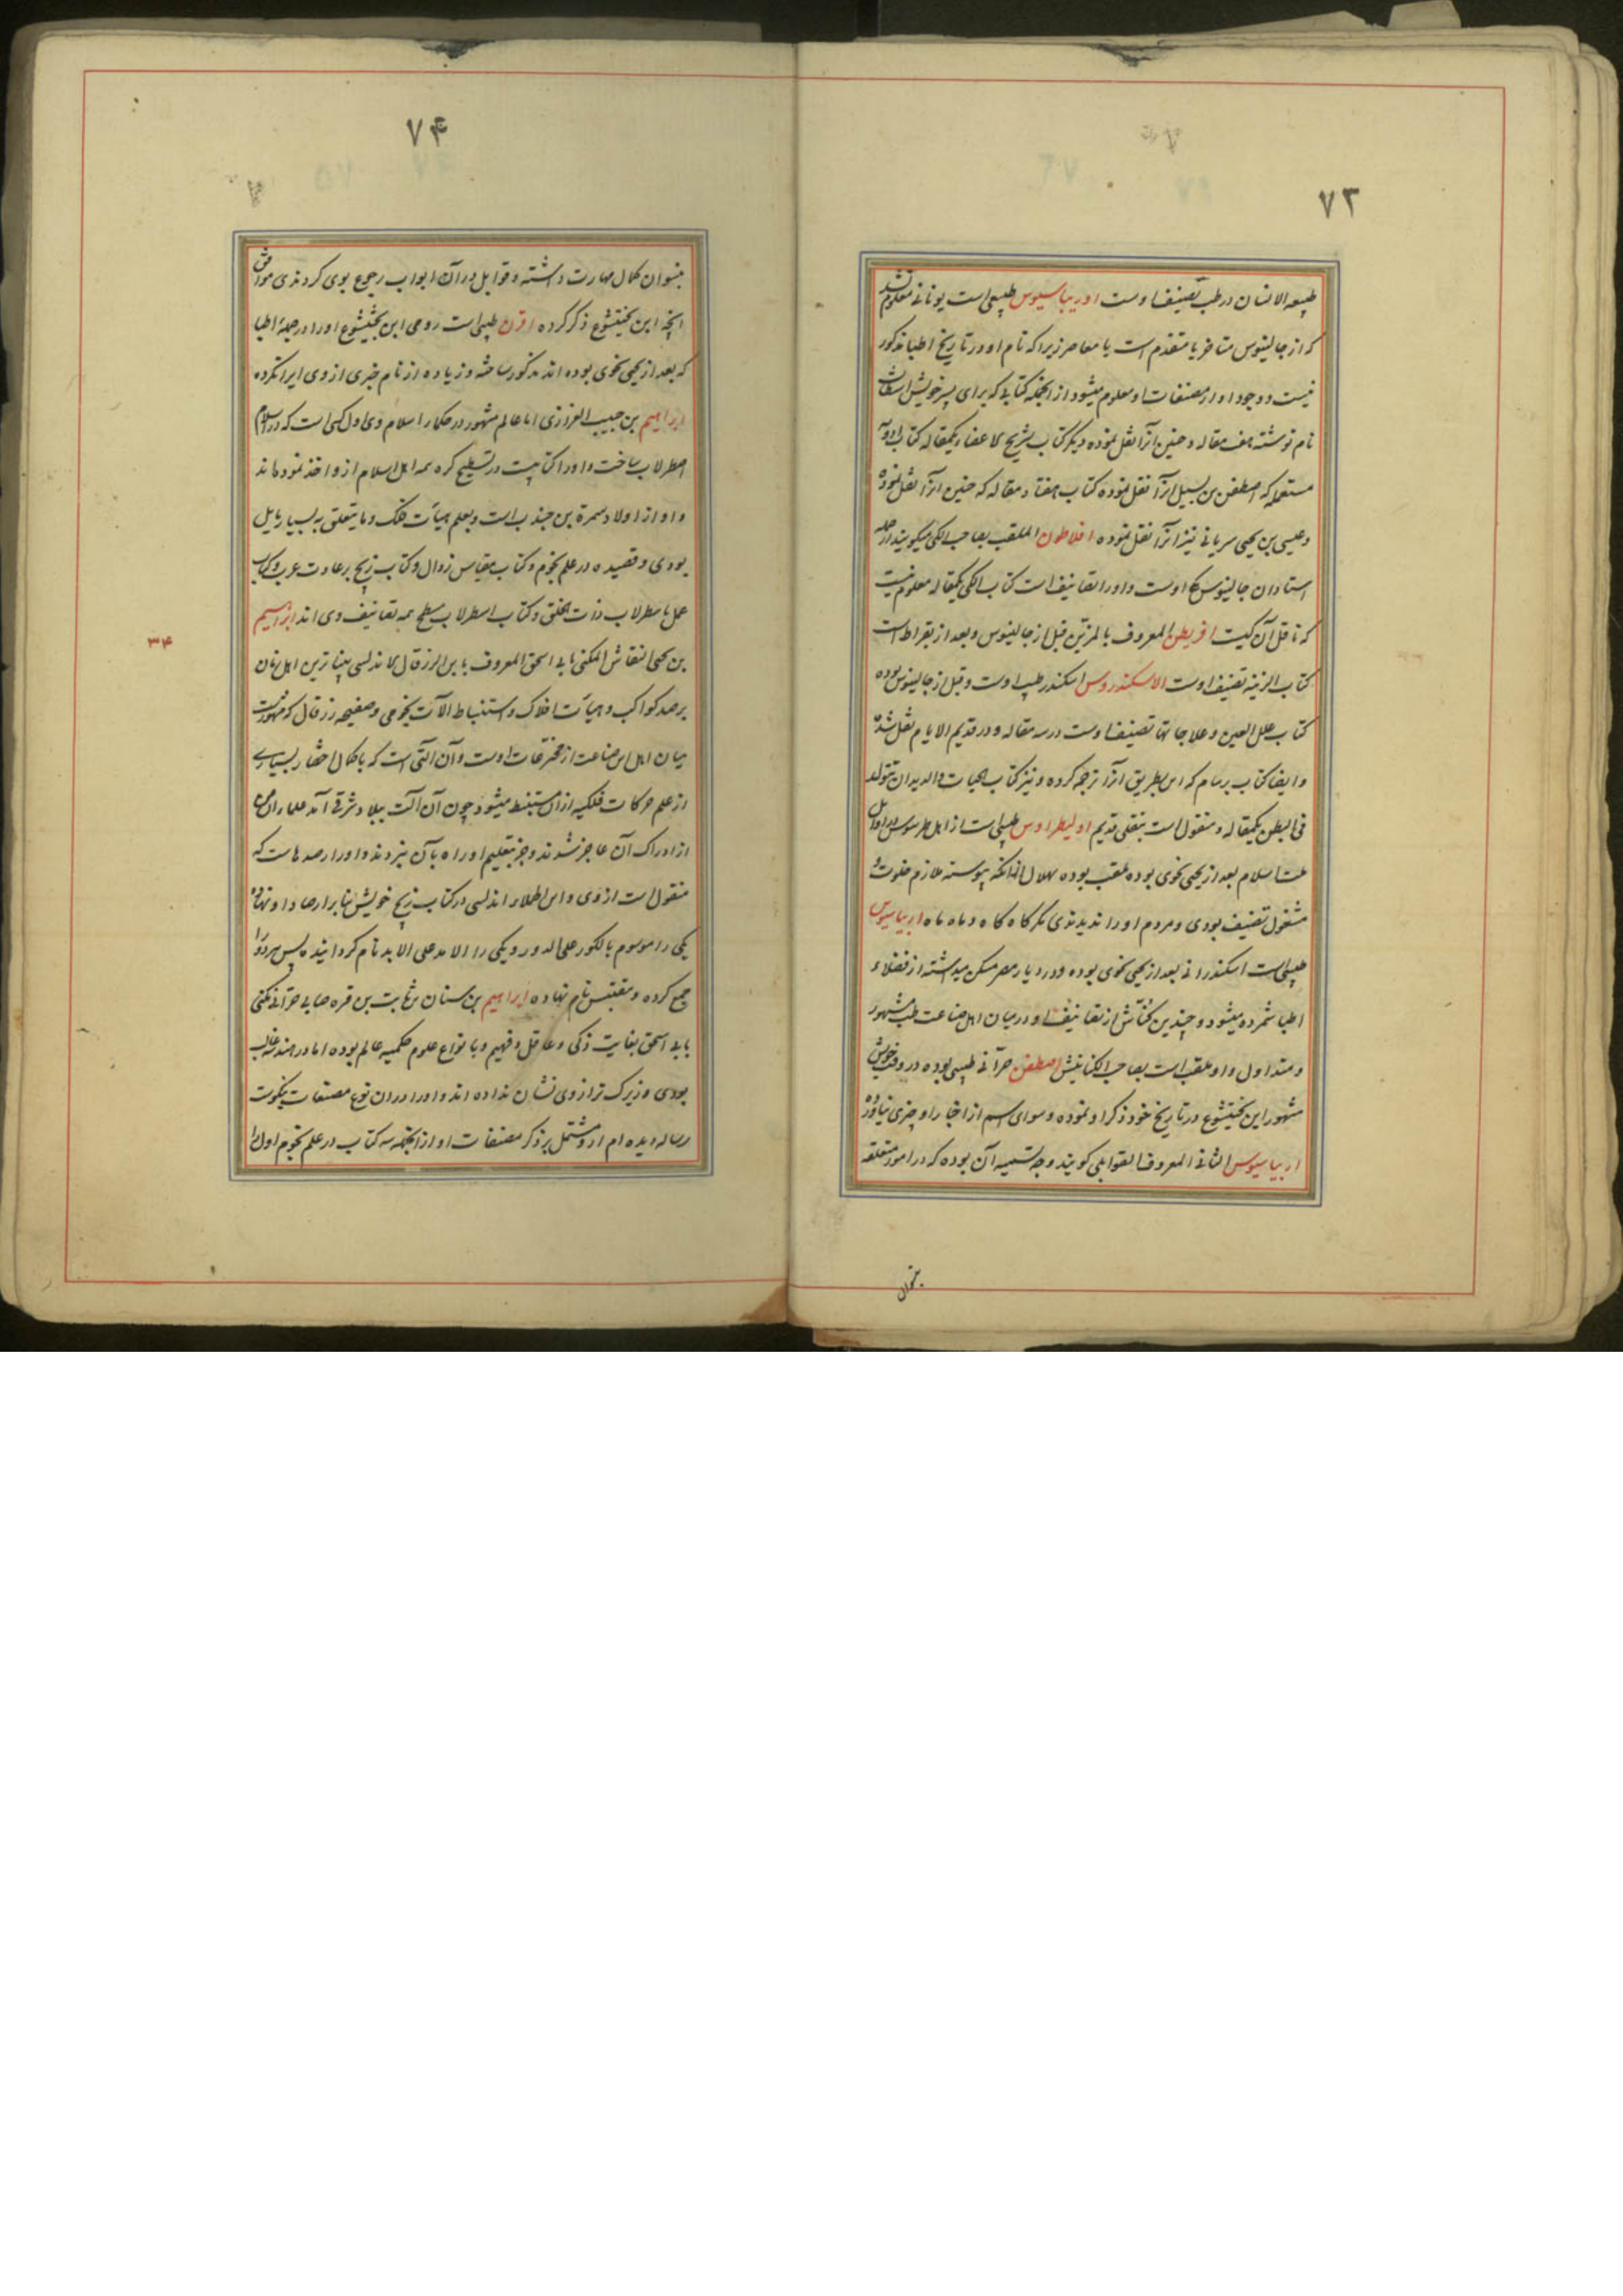 ۷۳
طبیعه الانسان در طب تصنیف اوست اوریباسیوس طبیبی است یونانی معلوم نشد
که از جالینوس متاخر یا متقدم است یا معاصر زیرا که نام او در تاریخ اطبا مذکور
نیست و وجود او از مصنفات او معلوم میشود از انجمله کتابی که برای پسر خویش اسطاث
نام نوشته هفت مقاله و حنین آنرا نقل نموده دیگر کتاب تشریح الاعضا یکمقاله کتاب ادویه
مستعمله که اصطفن بن بسیل آنرا نقل نموده کتاب هفتاد مقاله که حنین آنرا نقل نموده
و عیسی بن یحیی سریانی نیز آنرا نقل نموده افلاطون الملقب بصاحب الکی میگویند از جمله
استادان جالینوس یکی اوست و او را تصانیف است کتاب الکی یکمقاله معلوم نیست
که ناقل آن کیست افریطن المعروف بالمزین قبل از جالینوس و بعد از بقراط است
کتاب الزینه تصنیف اوست الاسکندروس اسکندر طبیب اوست و قبل از جالینوس بوده
کتاب علل العین و علاجاتها تصنیف اوست در سه مقاله و در قدیم الایام نقل شده
و ایضا کتاب برسام که ابن بطریق آنرا ترجمه کرده و نیز کتاب الحیات والدیدان تتولد
فی البطن یکمقاله و منقول است بنقلی قدیم اولیطراوس طبیبی است از اهل طرسوس در اوایل
ملت اسلام بعد از یحیی نحوی بوده ملقب بوده بهلال از آنکه پیوسته ملازم خلوت و
مشغول تصنیف بودی و مردم او را ندیدندی مگر گاه گاه و ماه ماه اریباسیوس
طبیبی است اسکندرانی بعد از یحیی نحوی بوده و در دیار مصر مسکن میداشته از فضلاء
اطبا شمرده میشود و چندین کناش از تصانیف او در میان اهل صناعت طب مشهور
و متداول و او ملقب است بصاحب الکنانیش اصطفن حرانی طبیبی بوده در وقت خویش
مشهور ابن بختیشوع در تاریخ خود ذکر او نموده و سوای اسم از اخبار او چیزی نیاورده
اریباسیوس الثانی المعروف القوابلی گویند وجه تسمیه آن بوده که در امور متعلقه
بنسوان
۷۴
بنسوان کمال مهارت داشته و قوابل در آن ابواب رجوع بوی کردندی موافق
انچه ابن بختیشوع ذکر کرده اقرن طبیبی است رومی ابن بختیشوع او را در جمله اطبا
که بعد از یحیی نحوی بوده اند مذکور ساخته و زیاده از نام خبری از وی ایراد نکرده
ابراهیم بن حبیب الفزازی اما عالم مشهور در حکماء اسلام و وی اول کسی است که در اسلام
اصطرلاب ساخت و او را کتابیست در تسطیح کره همه اهل اسلام از و اخذ نموده اند
و او از اولاد سمرة بن جندب است و بعلم هیأت فلک و ما یتعلق به بسیار مایل
بودی و قصیده در علم نجوم و کتاب مقیاس زوال و کتاب زیج بر عادت عرب و کتاب
عمل باسطرلاب ذات الحلق و کتاب اسطرلاب مسطح همه تصانیف وی اند ابراهیم
۳۴
بن یحیی النقاش المکنی بابی اسحق المعروف بابن الزرقال الاندلسی بیناترین اهل زمان
برصد کواکب و هیأت افلاک و استنباط الآت نجومی و صفیحه زرقال که مشهورست
میان اهل این صناعت از مخترعات اوست و آن آلتی است که با کمال اختصار بسیاری
از علم حرکات فلکیه از آن مستنبط میشود چون آن آلت ببلاد شرقی آمد علماء آن
از ادراک آن عاجز شدند و جز بتعلیم او راه بآن نبردند و او را رصدهاست که
منقول است از وی و ابن اطلار اندلسی در کتاب زیج خویش بنا بر ارصاد او نهاده
یکی را موسوم بالکور علی الدور و یکی را الامد علی الابد نام گردانیده پس هر دو را
جمع کرده و مقتبس نام نهاده ابراهیم بن سنان بن ثابت بن قره صابی حرانی مکنی
بابی اسحق بغایت ذکی و عاقل و فهیم و بانواع علوم حکمیه عالم بوده اما در هندسه غالب
بودی و زیرک تر از وی نشان نداده اند و او را در ان نوع مصنفات نیکوست
رساله دیده ام از و مشتمل بر ذکر مصنفات او از انجمله سه کتاب در علم نجوم اول